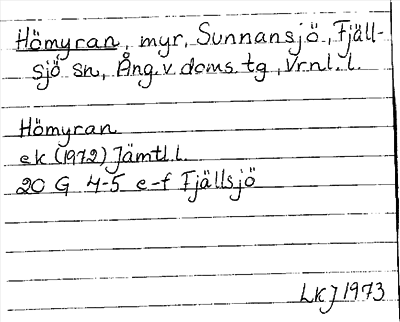 Hömyran, myr, Sunnansjö, Fjäll-
sjö sn, Ång.v.doms.tg, Vrnl.l.
Hömyran
ek (1972) Jämtl.l.
20 G 4-5 e-f Fjällsjö
LKJ 1973